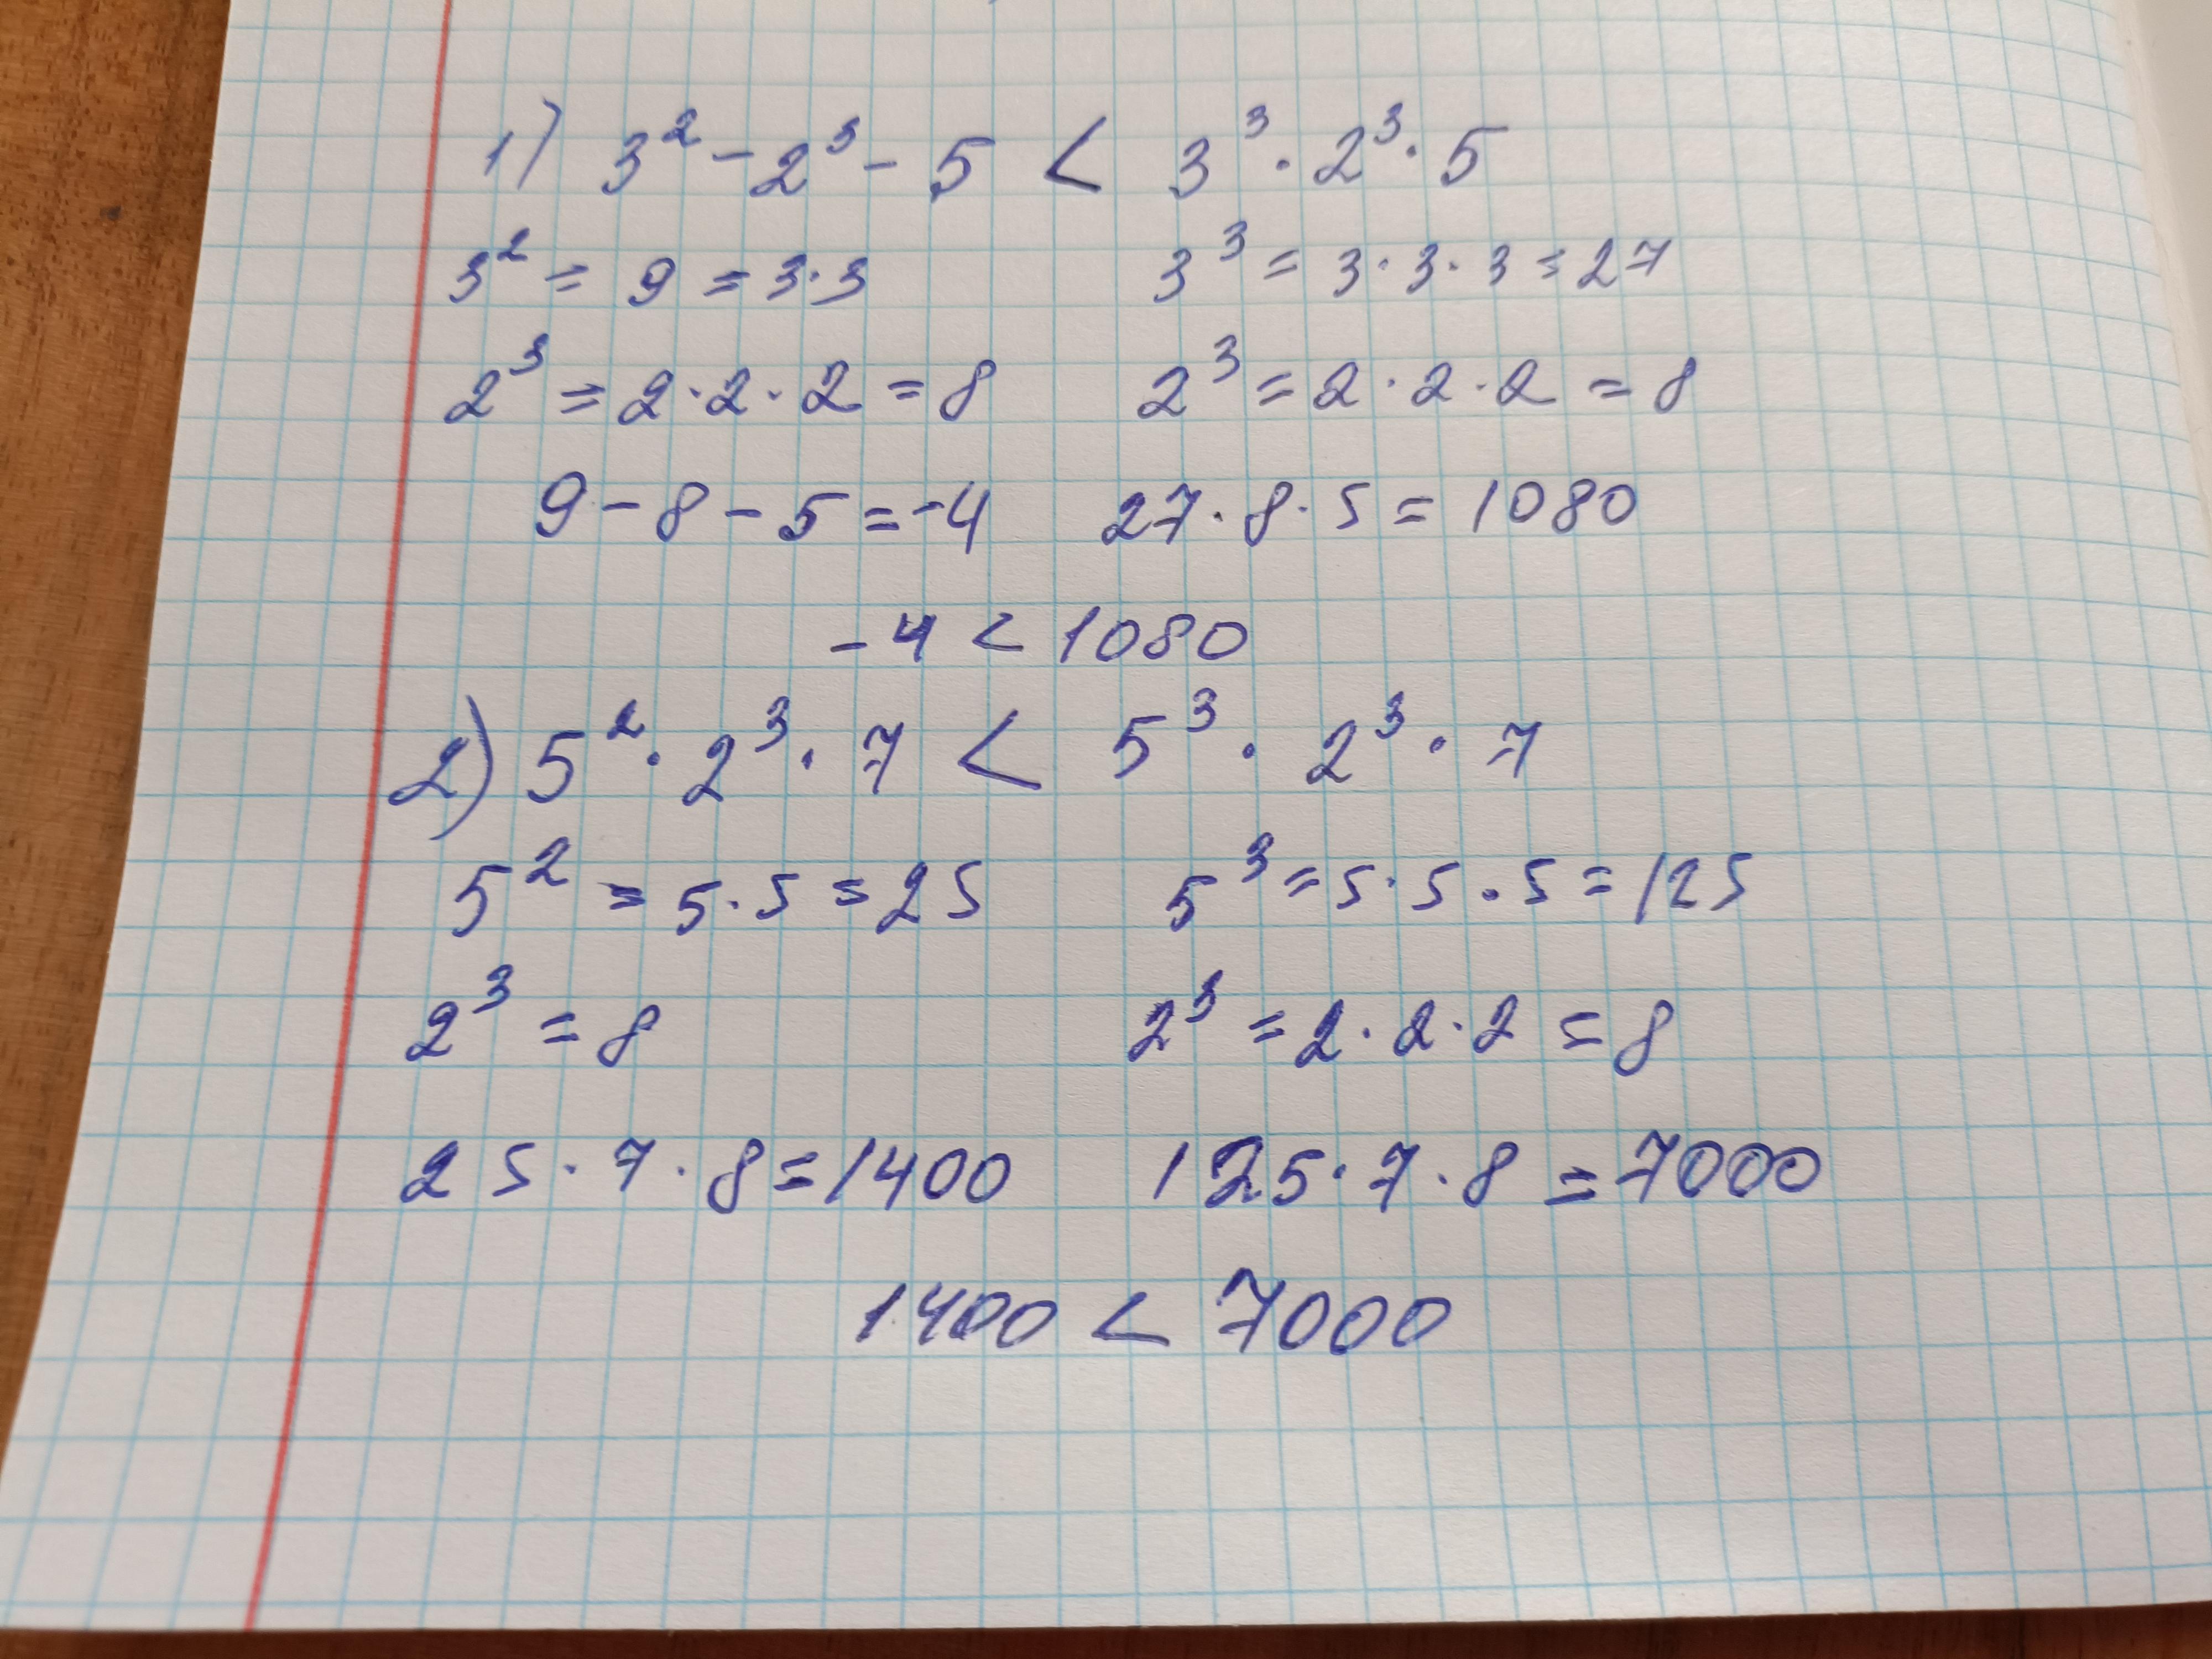 1) 3² - 2³ - 5 < 3³ · 2³ · 5
3² = 9 = 3·3 3³ = 3·3·3 = 27
2³ = 2·2·2 = 8 2³ = 2·2·2 = 8
9 - 8 - 5 = -4 27·8·5 = 1080
-4 < 1080
2) 5² · 2³ · 7 < 5³ · 2³ · 7
5² = 5·5 = 25 5³ = 5·5·5 = 125
2³ = 8 2³ = 2·2·2 = 8
25·7·8 = 1400 125·7·8 = 7000
1400 < 7000